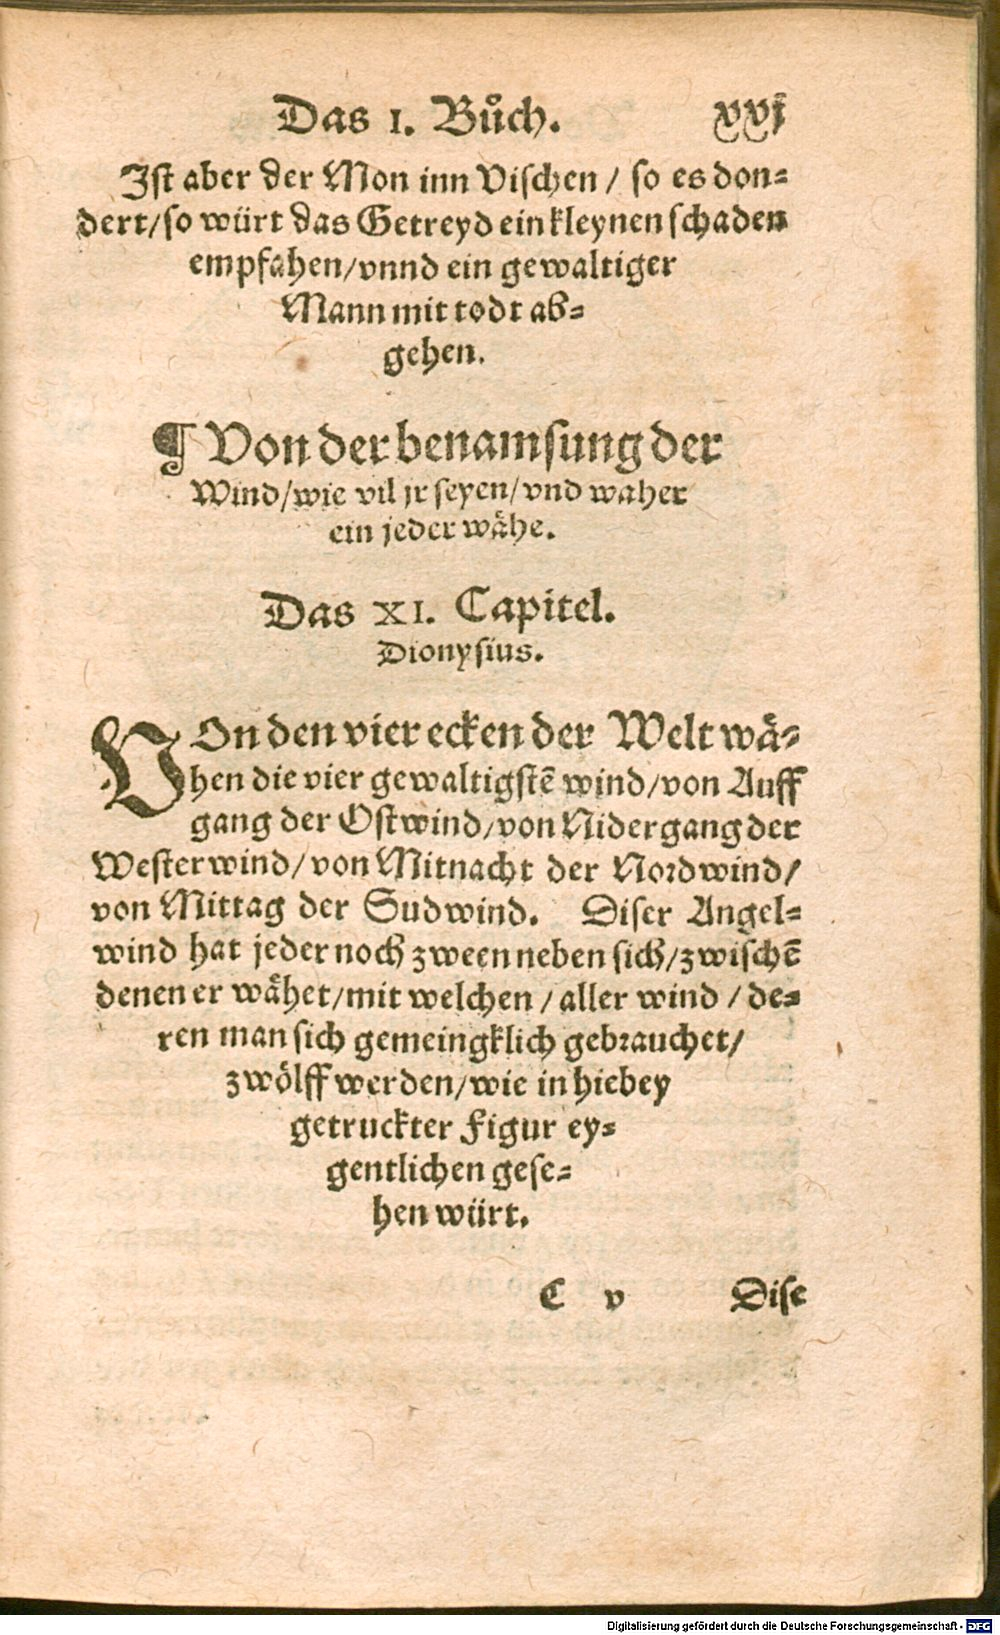 Das I. Bůch. xxvj
Ist aber der Mon inn Vischen / so es don⸗
dert/so würt das Getreyd ein kleynen schaden
empfahen/vnnd ein gewaltiger
Mann mit todt ab⸗
gehen.
¶ Von der benamsung der
Wind/wie vil jr seyen/vnd waher
ein jeder wåhe.
Das XI. Capitel.
Dionysius.
VOn den vier ecken der Welt wå⸗
hen die vier gewaltigstē wind/von Auff
gang der Ostwind/von Nidergang der
Westerwind/von Mitnacht der Nordwind/
von Mittag der Sudwind. Diser Angel⸗
wind hat jeder noch zween neben sich/zwischē
denen er wåhet/mit welchen / aller wind / de⸗
ren man sich gemeingklich gebrauchet/
zwölff werden/wie in hiebey
getruckter Figur ey⸗
gentlichen gese⸗
hen würt.
C v Dise
Digitalisierung gefördert durch die Deutsche Forschungsgemeinschaft - DFG